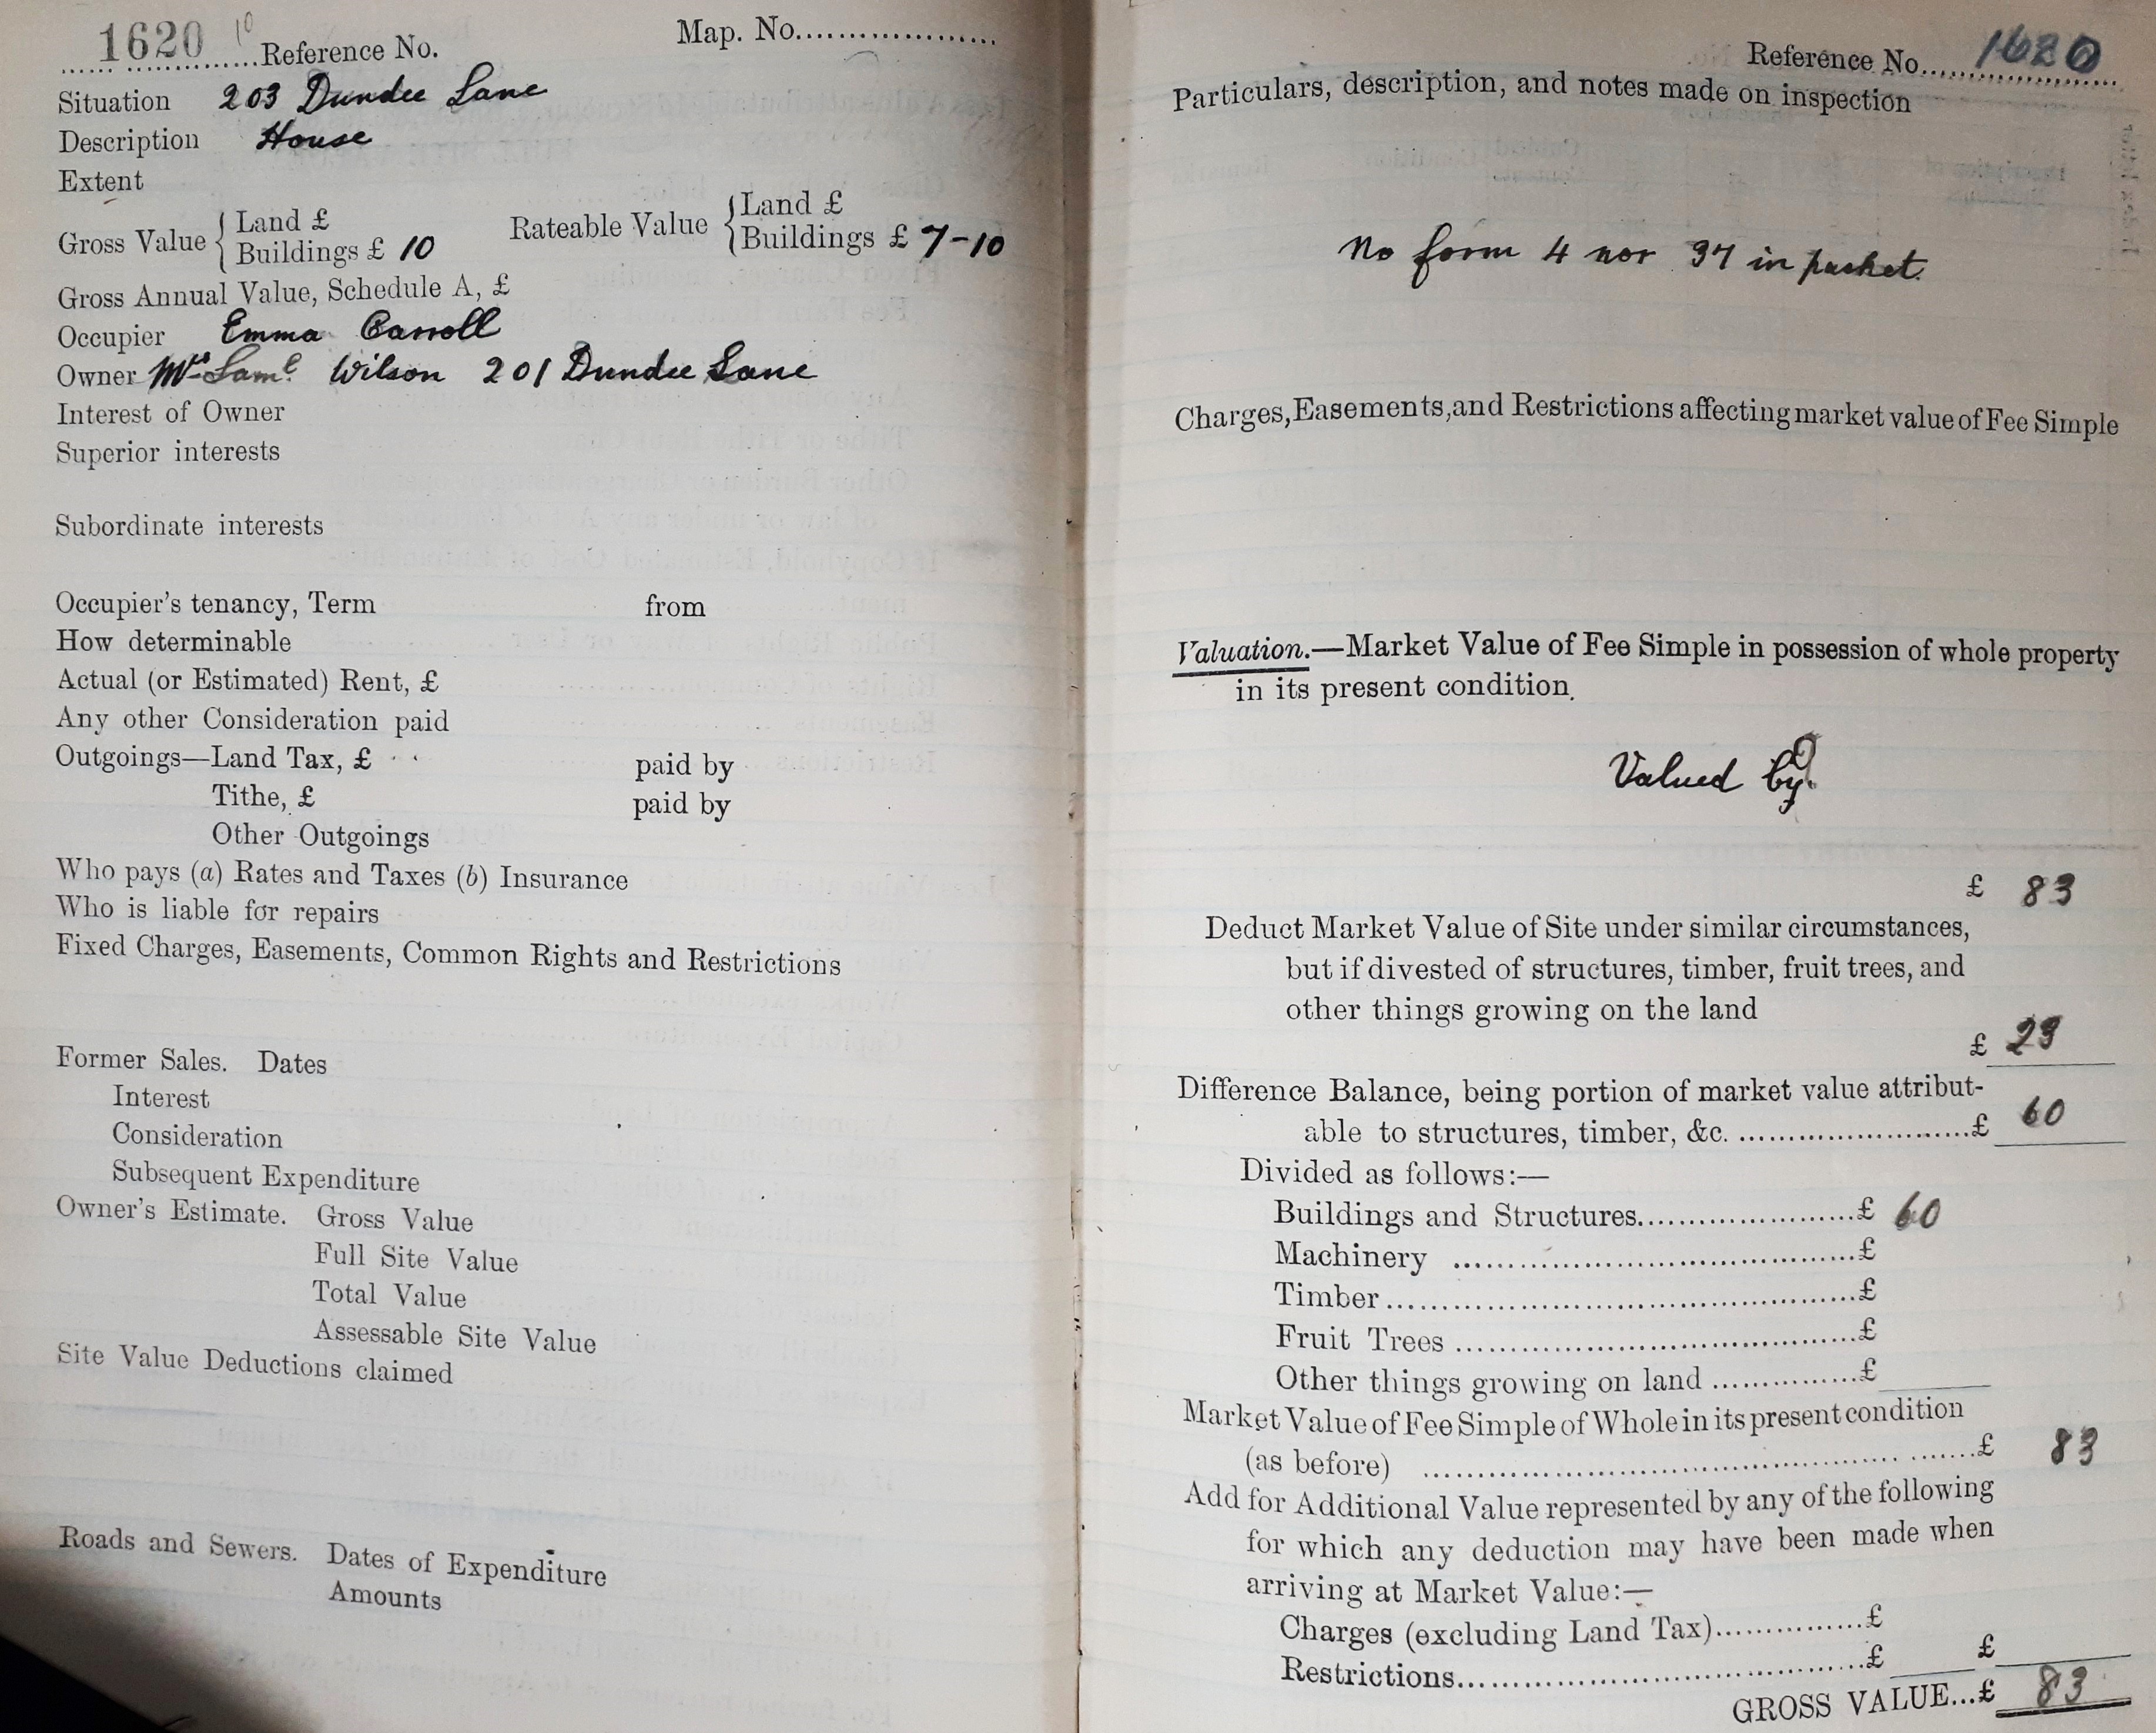 1620 10 Reference No. Map. No.
Situation 203 Dundee Lane
Description House
Extent
Gross Value { Land £
Buildings £ 10
Rateable Value { Land £
Buildings £ 7-10
Gross Annual Value, Schedule A, £
Occupier Emma Carroll
Owner Mrs Saml. Wilson 201 Dundee Lane
Interest of Owner
Superior interests
Subordinate interests
Occupier's tenancy, Term from
How determinable
Actual (or Estimated) Rent, £
Any other Consideration paid
Outgoings—Land Tax, £ paid by
Tithe, £ paid by
Other Outgoings
Who pays (a) Rates and Taxes (b) Insurance
Who is liable for repairs
Fixed Charges, Easements, Common Rights and Restrictions
Former Sales. Dates
Interest
Consideration
Subsequent Expenditure
Owner's Estimate. Gross Value
Full Site Value
Total Value
Assessable Site Value
Site Value Deductions claimed
Roads and Sewers. Dates of Expenditure
Amounts
Reference No. 1620
Particulars, description, and notes made on inspection
No form 4 nor 37 in packet.
Charges, Easements, and Restrictions affecting market value of Fee Simple
Valuation.—Market Value of Fee Simple in possession of whole property
in its present condition.
Valued by?
£ 83
Deduct Market Value of Site under similar circumstances,
but if divested of structures, timber, fruit trees, and
other things growing on the land
£ 23
Difference Balance, being portion of market value attribut-
able to structures, timber, &c. £ 60
Divided as follows:—
Buildings and Structures £ 60
Machinery £
Timber £
Fruit Trees £
Other things growing on land £
Market Value of Fee Simple of Whole in its present condition
(as before) £ 83
Add for Additional Value represented by any of the following
for which any deduction may have been made when
arriving at Market Value:—
Charges (excluding Land Tax) £
Restrictions £ £
GROSS VALUE...£ 83